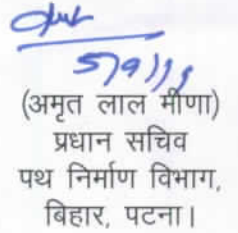 5/9/19
(अमृत लाल मीणा)
प्रधान सचिव
पथ निर्माण विभाग,
बिहार, पटना।